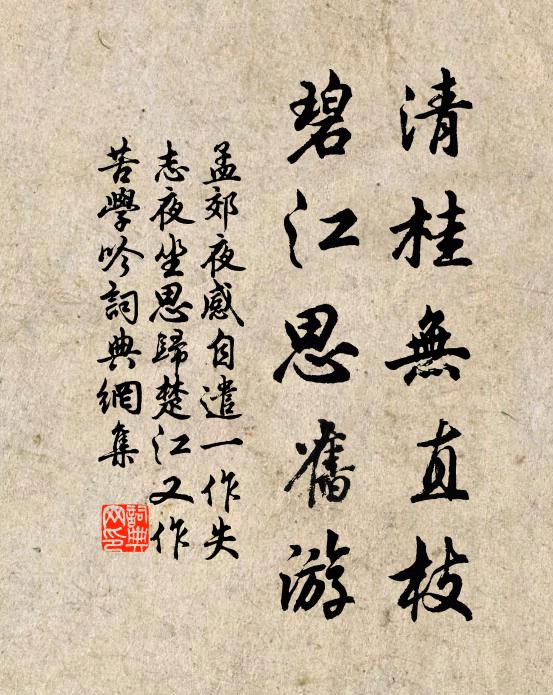 清桂無直枝
碧江思舊游
孟郊夜感自遣一作失
志夜坐思歸楚江又作
苦學吟詞典網集
詞典网印